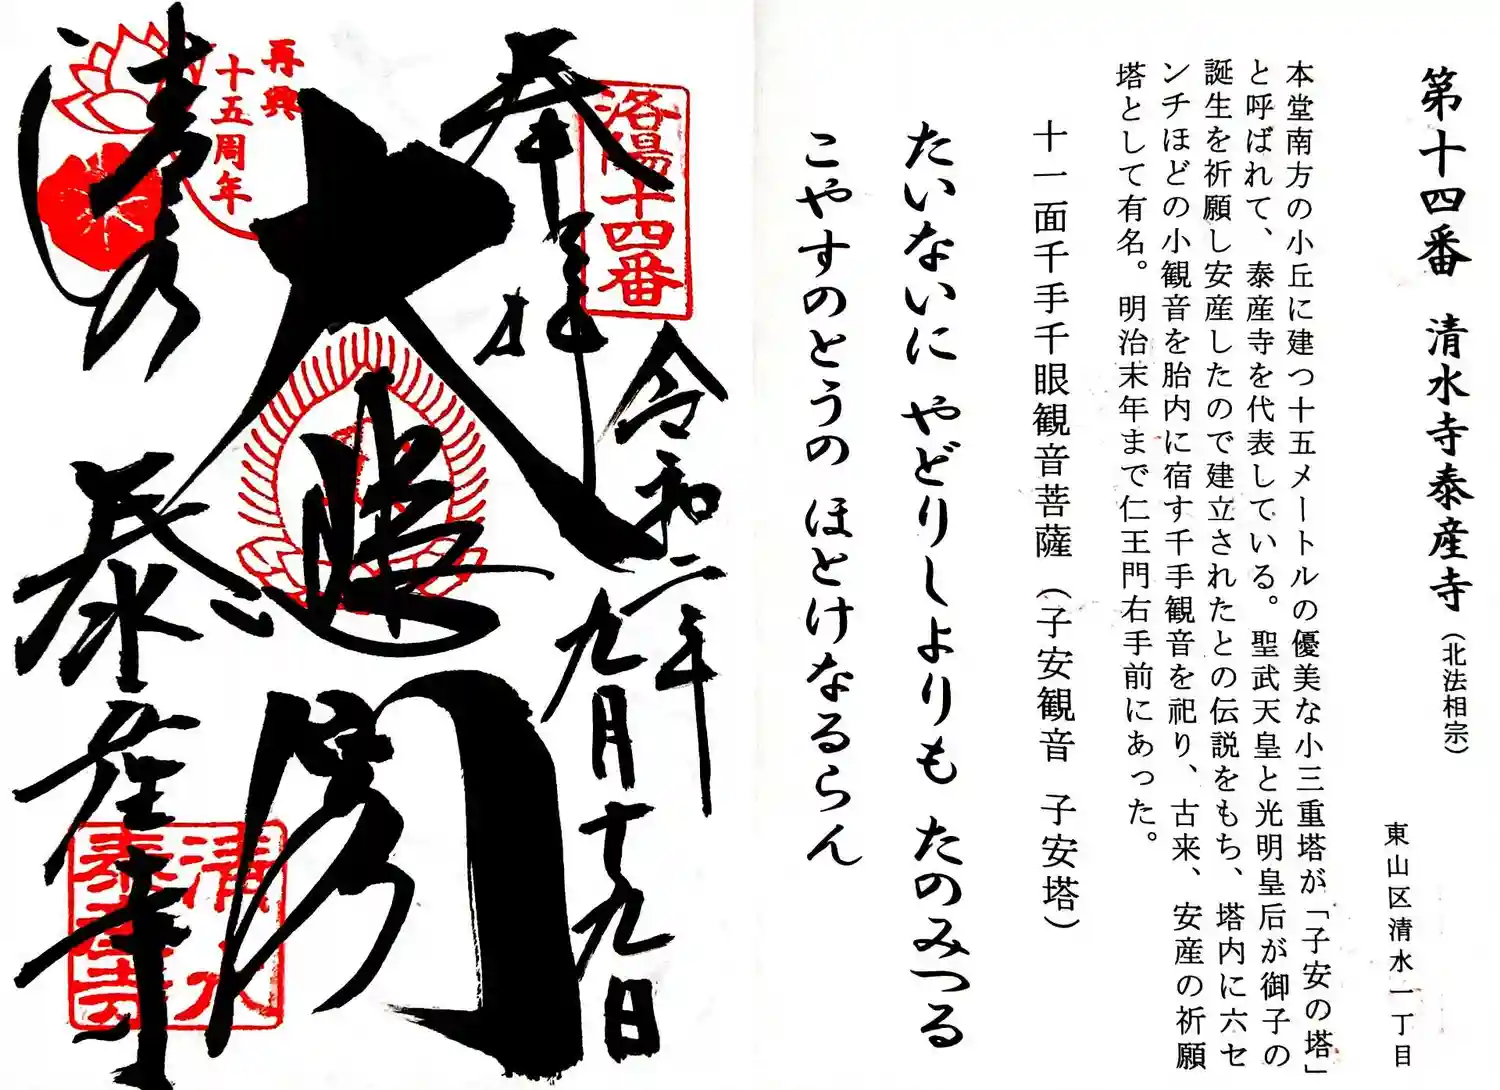 第十四番 清水寺泰産寺(北法相宗)
東山区清水一丁目
本堂南方の小丘に建つ十五メートルの優美な小三重塔が「子安の塔」
と呼ばれて、泰産寺を代表している。聖武天皇と光明皇后が御子の
誕生を祈願し安産したので建立されたとの伝説をもち、塔内に六セ
ンチほどの小観音を胎内に宿す千手観音を祀り、古来、安産の祈願
塔として有名。明治末年まで仁王門右手前にあった。
十一面千手千眼観音菩薩(子安観音 子安塔)
たいないに やどりしよりも たのみつる
こやすのとうの ほとけなるらん
洛陽十四番
奉拝
令和二年
九月十九日
大悲閣
再興
十五周年
清水
泰産寺
清水
泰産寺